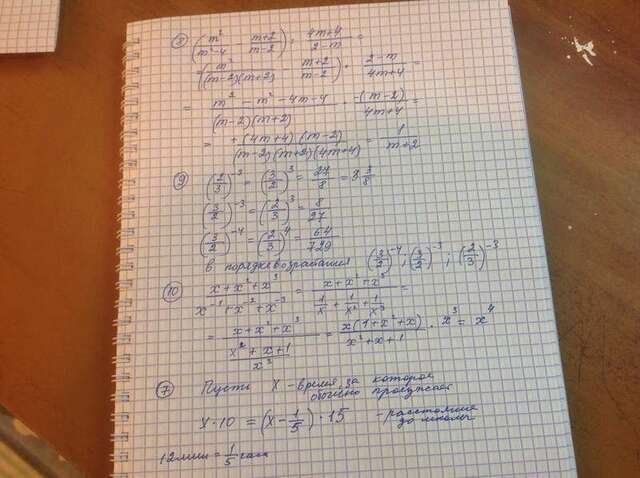 8 (m²/(m²-4) m+2/(m-2)) : (4m+4)/(2-m) =
= (m²/((m-2)(m+2)) - (m+2)/(m-2)) · (2-m)/(4m+4) =
= (m² - m² - 4m - 4)/((m-2)(m+2)) · -(m-2)/(4m+4) =
= +(4m+4)(m-2)/((m-2)(m+2)(4m+4)) = 1/(m+2)
9 (2/3)⁻³ = (3/2)³ = 27/8 = 3 3/8
(3/2)⁻³ = (2/3)³ = 8/27
(3/2)⁻⁴ = (2/3)⁴ = 64/729
в порядке возрастания (3/2)⁻⁴ ; (3/2)⁻³ ; (2/3)⁻³
10 (x+x²+x³)/(x⁻¹+x⁻²+x⁻³) = (x+x²+x³)/(1/x + 1/x² + 1/x³) =
= (x+x²+x³)/((x²+x+1)/x³) = x(1+x²+x)/(x²+x+1) · x³ = x⁴
7 Пусть x - время, за которое
обычно проезжает
x·10 = (x - 1/5) · 15 - расстояние
до школы
12 мин = 1/5 часа